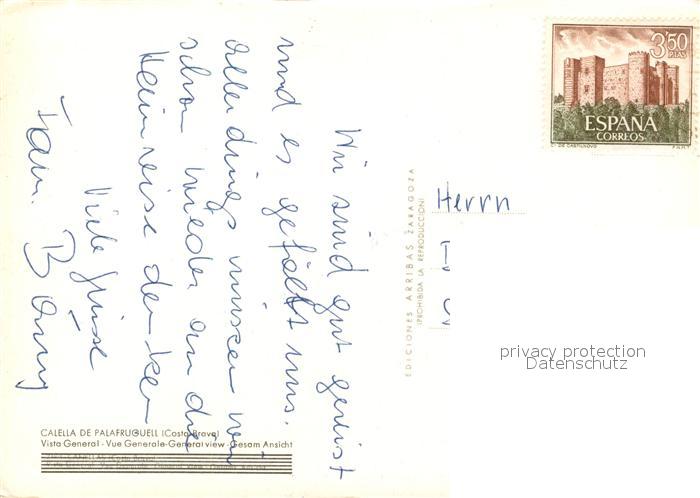 Wir sind gut gereist
und es gefällt uns.
Allerdings müssen wir
schon wieder an die
Heimreise denken
Viele Grüsse
Fam.
3,50
PTAS
ESPAÑA
CORREOS
Cº DE CASTILNOVO
F.N.M.T.
Herrn
EDICIONES ARRIBAS ZARAGOZA
(PROHIBIDA LA REPRODUCCION)
privacy protection
Datenschutz
CALELLA DE PALAFRUGUELL (Costa Brava)
Vista General - Vue Generale-General view - Gesam Ansicht